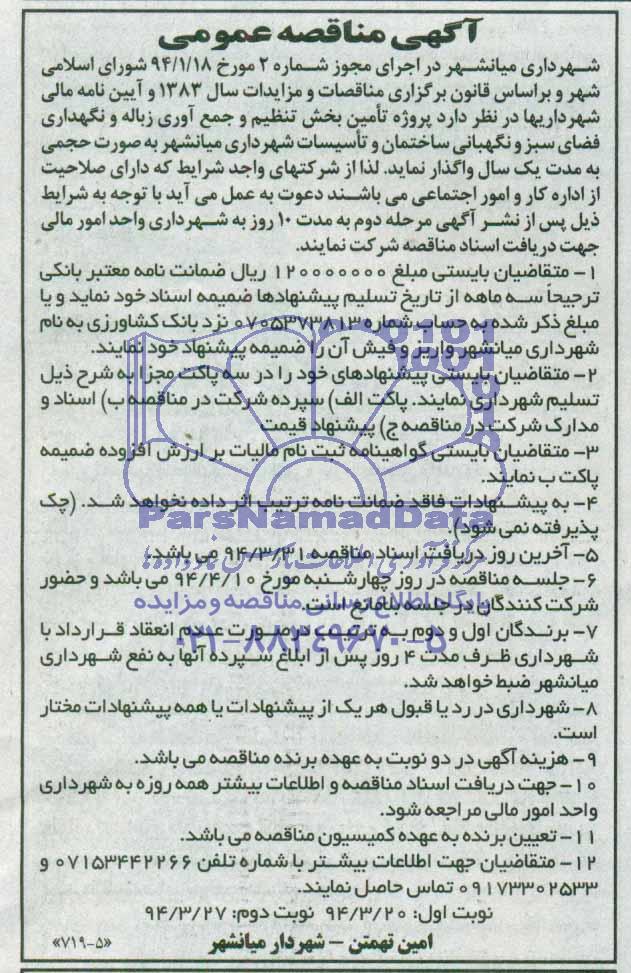 آگهی مناقصه عمومی
شهرداری میانشهر در اجرای مجوز شماره ۲ مورخ ۹۴/۱/۱۸ شورای اسلامی
شهر و براساس قانون برگزاری مناقصات و مزایدات سال ۱۳۸۳ و آیین نامه مالی
شهرداریها در نظر دارد پروژه تأمین بخش تنظیم و جمع آوری زباله و نگهداری
فضای سبز و نگهبانی ساختمان و تأسیسات شهرداری میانشهر به صورت حجمی
به مدت یک سال واگذار نماید. لذا از شرکتهای واجد شرایط که دارای صلاحیت
از اداره کار و امور اجتماعی می باشند دعوت به عمل می آید با توجه به شرایط
ذیل پس از نشر آگهی مرحله دوم به مدت ۱۰ روز به شهرداری واحد امور مالی
جهت دریافت اسناد مناقصه شرکت نمایند.
۱- متقاضیان بایستی مبلغ ۱۲۰۰۰۰۰۰۰ ریال ضمانت نامه معتبر بانکی
ترجیحاً سه ماهه از تاریخ تسلیم پیشنهادها ضمیمه اسناد خود نماید و یا
مبلغ ذکر شده به حساب شماره ۰۷۰۵۳۷۳۸۱۳ نزد بانک کشاورزی به نام
شهرداری میانشهر واریز و فیش آن را ضمیمه پیشنهاد خود نمایند.
۲- متقاضیان بایستی پیشنهادهای خود را در سه پاکت مجزا به شرح ذیل
تسلیم شهرداری نمایند. پاکت الف) سپرده شرکت در مناقصه ب) اسناد و
مدارک شرکت در مناقصه ج) پیشنهاد قیمت
۳- متقاضیان بایستی گواهینامه ثبت نام مالیات بر ارزش افزوده ضمیمه
پاکت ب نمایند.
۴- به پیشنهادات فاقد ضمانت نامه ترتیب اثر داده نخواهد شد. (چک
پذیرفته نمی شود).
ParsNamadData
۵- آخرین روز دریافت اسناد مناقصه ۹۴/۳/۳۱ می باشد.
مرکز فرآوری اطلاعات پارس نماد داده‌ها
۶- جلسه مناقصه در روز چهارشنبه مورخ ۹۴/۴/۱۰ می باشد و حضور
شرکت کنندگان در جلسه بلامانع است.
پایگاه اطلاع رسانی مناقصه و مزایده
۷- برندگان اول و دوم به ترتیب در صورت عدم انعقاد قرارداد با
۰۲۱-۸۸۳۴۹۶۷۰-۵
شهرداری ظرف مدت ۴ روز پس از ابلاغ سپرده آنها به نفع شهرداری
میانشهر ضبط خواهد شد.
۸- شهرداری در رد یا قبول هر یک از پیشنهادات یا همه پیشنهادات مختار
است.
۹- هزینه آگهی در دو نوبت به عهده برنده مناقصه می باشد.
۱۰- جهت دریافت اسناد مناقصه و اطلاعات بیشتر همه روزه به شهرداری
واحد امور مالی مراجعه شود.
۱۱- تعیین برنده به عهده کمیسیون مناقصه می باشد.
۱۲- متقاضیان جهت اطلاعات بیشتر با شماره تلفن ۰۷۱۵۳۴۴۲۲۶۶ و
۰۹۱۷۳۳۰۲۵۳۳ تماس حاصل نمایند.
نوبت اول: ۹۴/۳/۲۰ نوبت دوم: ۹۴/۳/۲۷
امین تهمتن - شهردار میانشهر
«۷۱۹-۵»